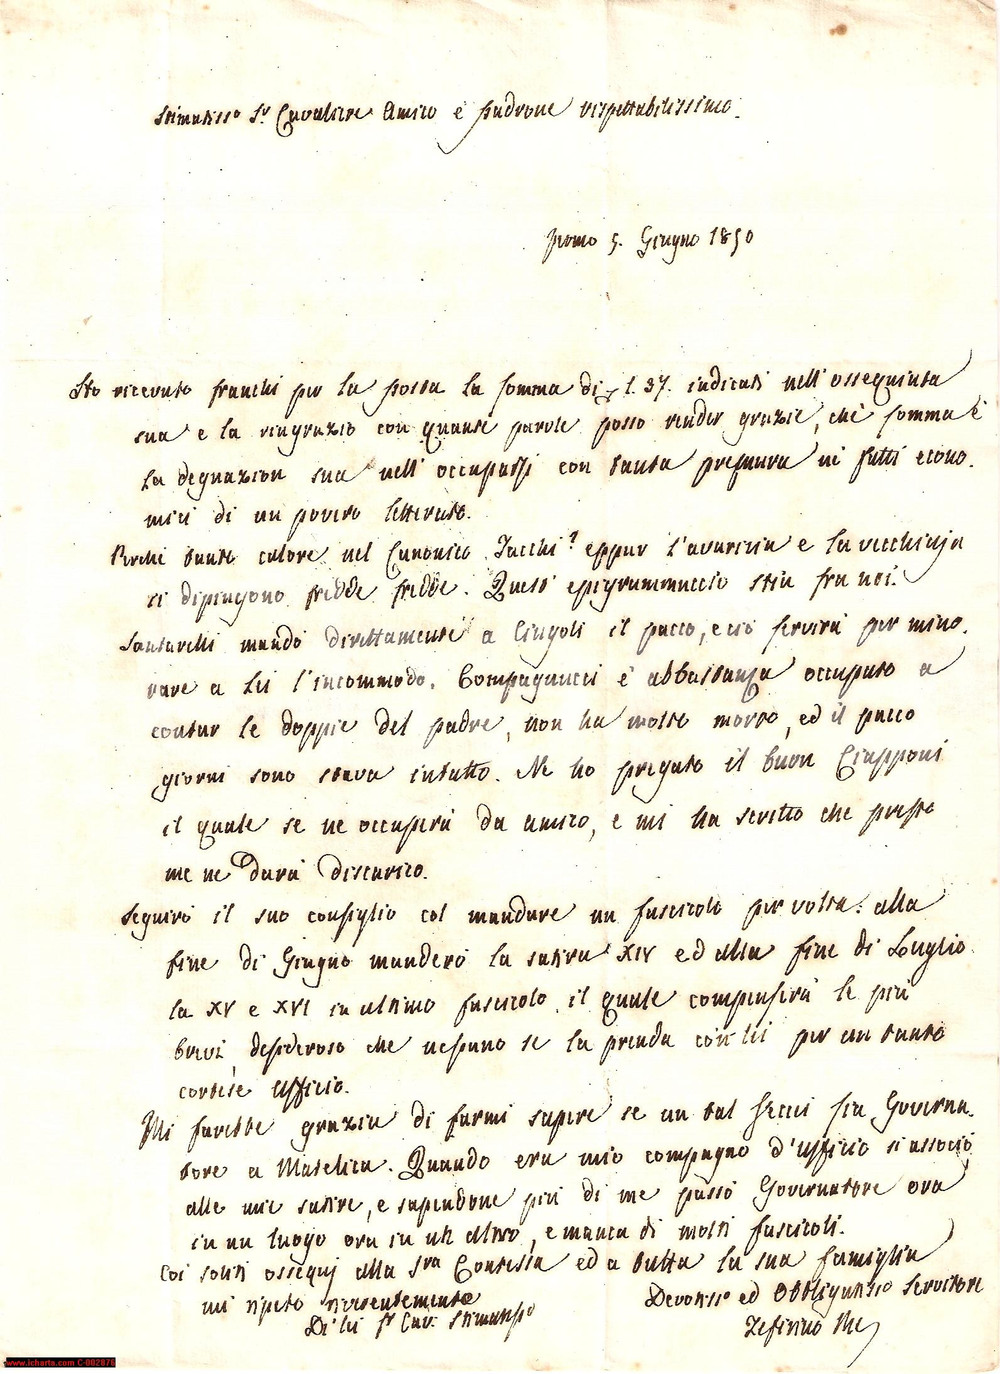 Stimatisso Sr Cavaliere Amico e padrone rispettabilissimo.
Fermo 5. Giugno 1850
Ho ricevuto franchi per la posta la somma di l. 37. indicati nell'ossequiata
sua e la ringrazio con quante parole posso render grazie, chè somma è
la degnazion sua nell'occuparsi con tanta premura ne' fatti econo-
mici di un povero letterato.
Perchè tanto calore nel Canonico Zacchi? eppur l'avarizia e la vecchiaja
si dipingono fredde fredde. Quest'epigrammuccio stia fra noi.
Santarelli mandò direttamente a Cingoli il pacco, e ciò servirà per mino-
rare a Lei l'incommodo. Compagnucci è abbastanza occupato a
contar le doppie del padre, non ha molto morto, ed il pacco
giorni sono stava intatto. Ne ho pregato il buon Ciapponi
il quale se ne occuperà da amico, e mi ha scritto che presto
me ne darà discarico.
Seguirò il suo consiglio col mandare un fascicolo per volta: alla
fine di Giugno manderò la satira XIV ed alla fine di Luglio
la XV e XVI in ultimo fascicolo, il quale compenserà le più
brevi, desideroso che nessuno se la prenda con lei per un tanto
cortese ufficio.
Mi farebbe grazia di farmi sapere se un tal Secci sia Governa-
tore a Matelica. Quando era mio compagno d'ufficio si associò
alle mie satire, e sapendone più di me passò Governatore ora
in un luogo ora in un altro, e manca di molti fascicoli.
Coi soliti ossequj alla Sra Contessa ed a tutta la sua famiglia
mi ripeto riverentemente
Di Lei Sr Cav. Stimatisso
Devotisso ed Obbligatisso Servitore
Zefirino Re
www.icharta.com C-002876